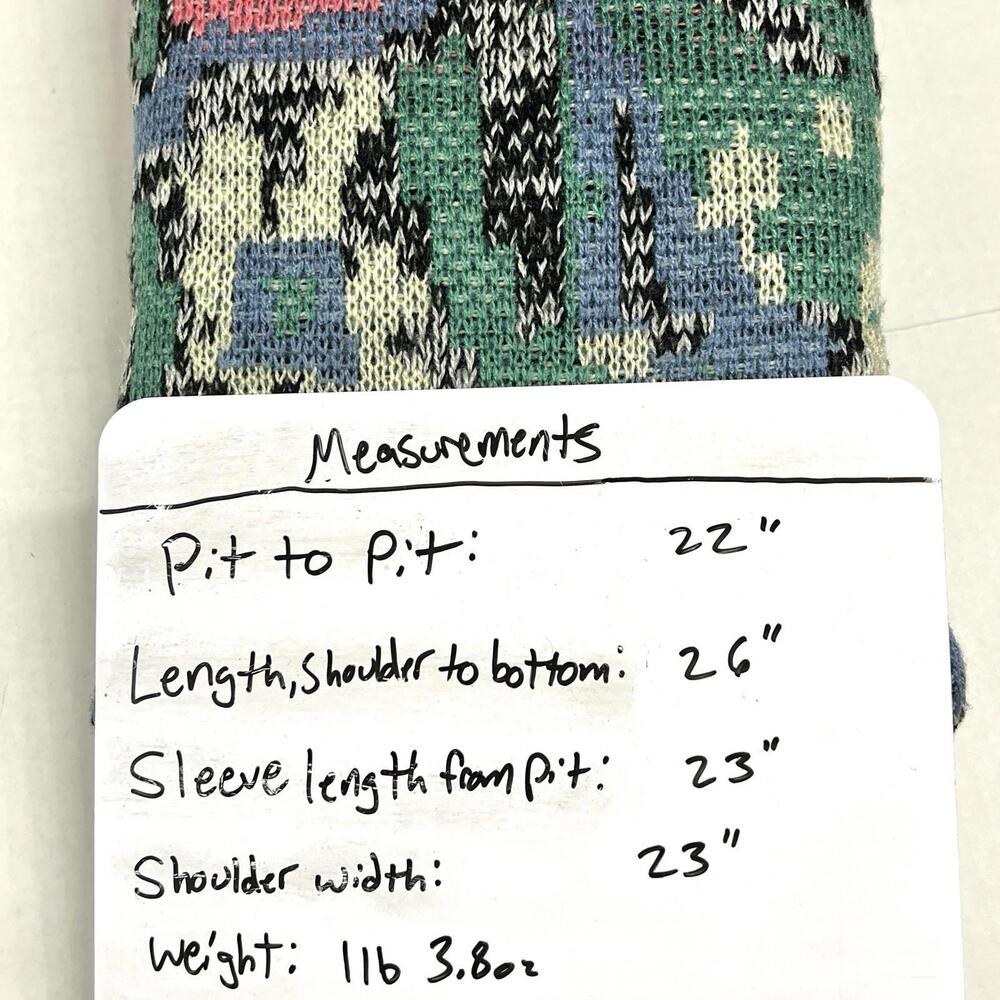 Measurements
Pit to Pit: 22"
Length, Shoulder to bottom: 26"
Sleeve length from pit: 23"
Shoulder width: 23"
Weight: 1lb 3.8oz